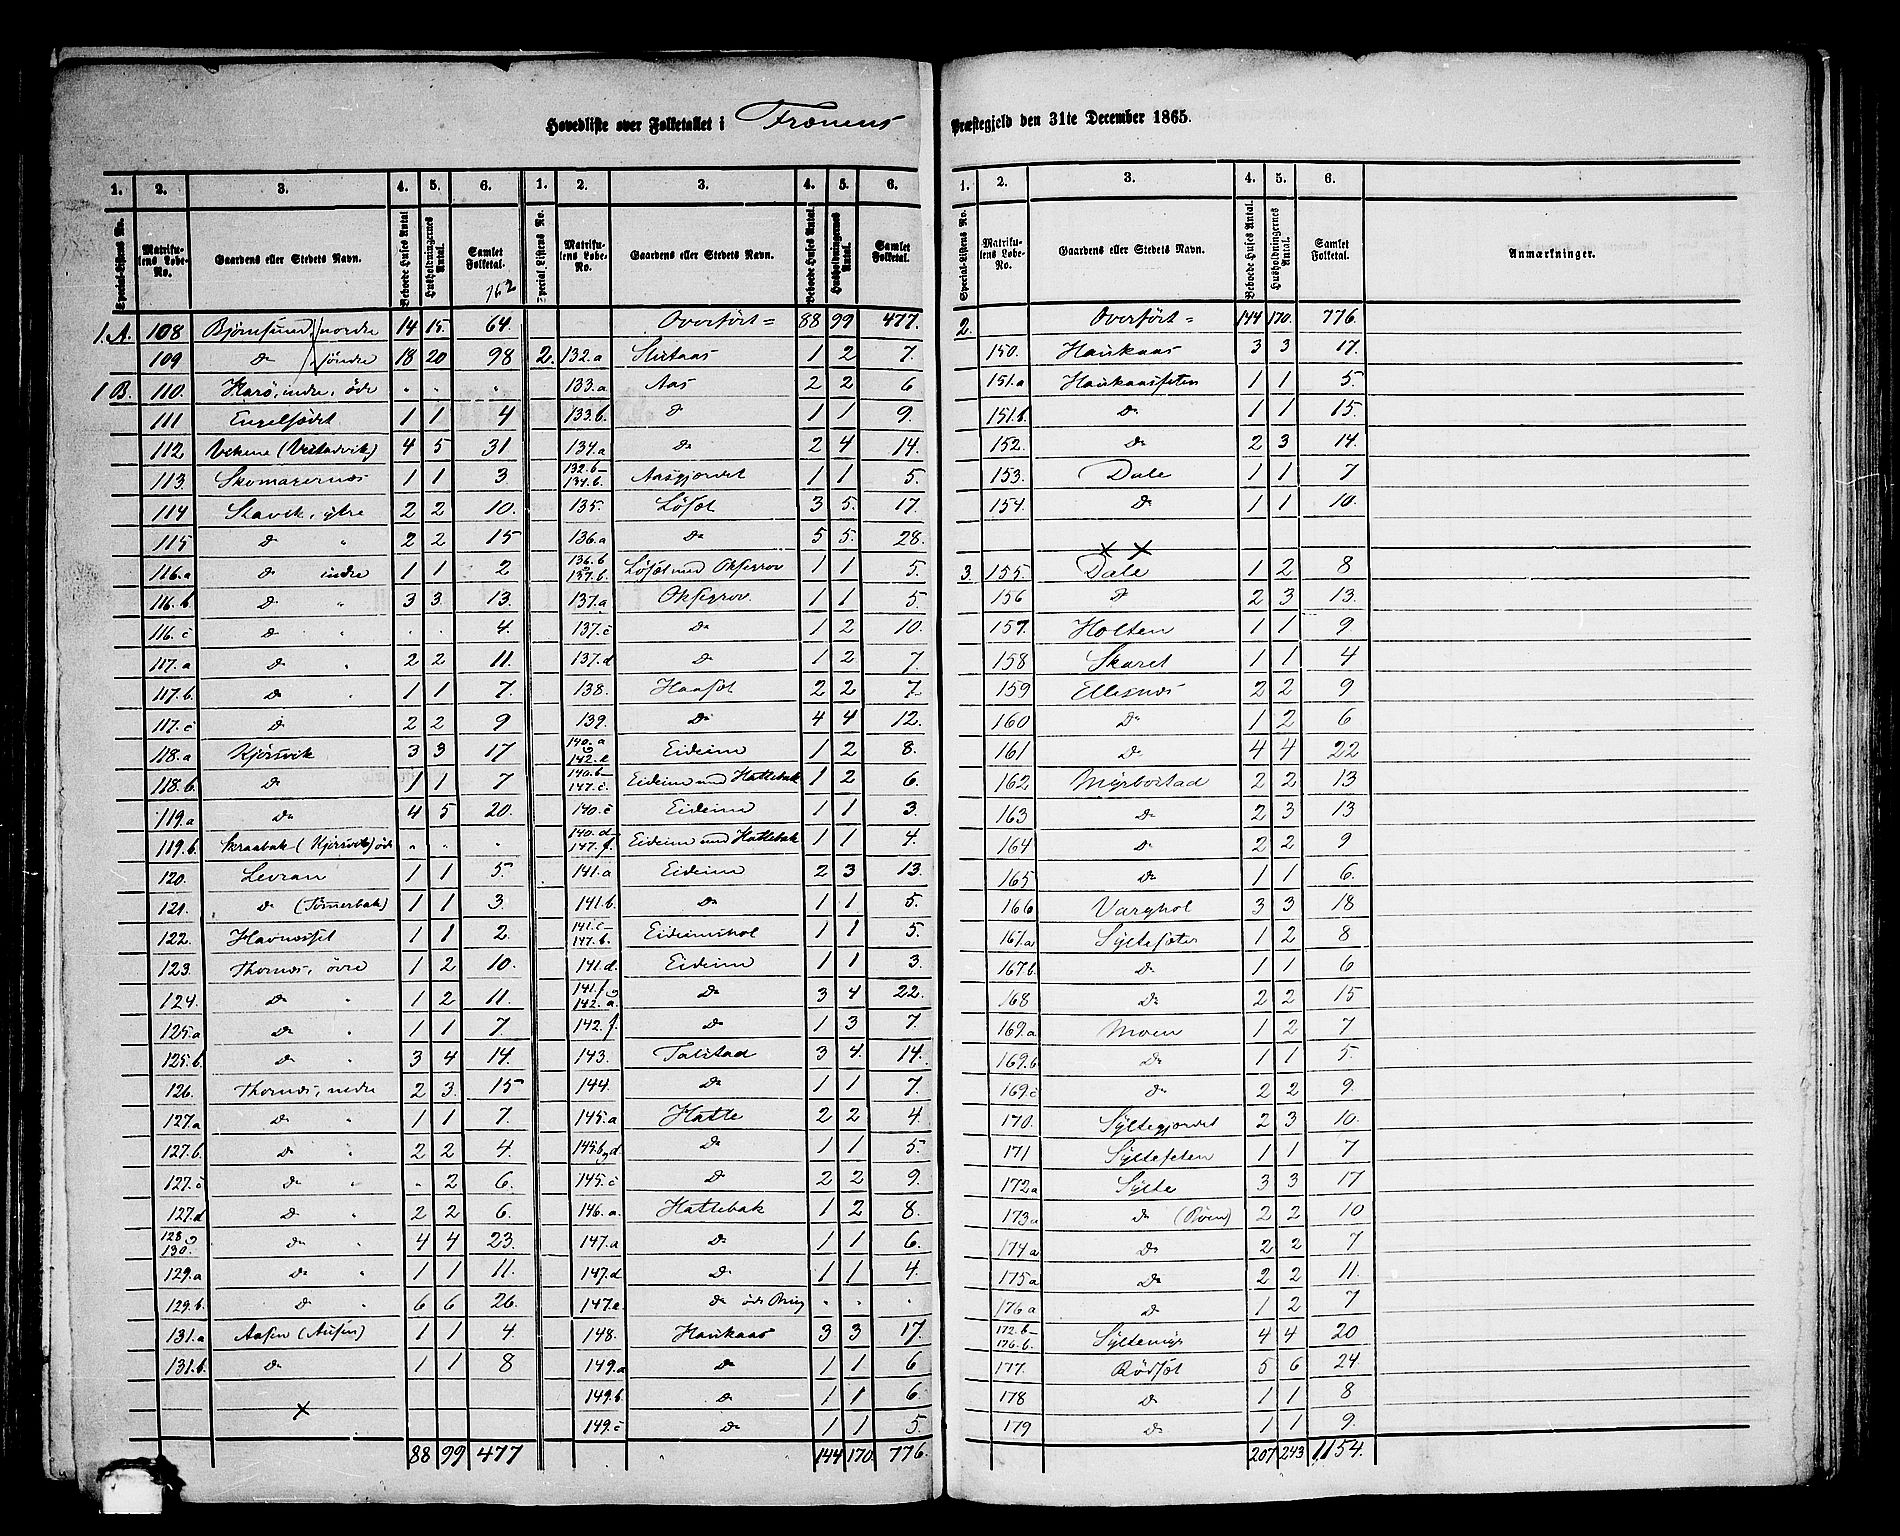 Hovedliste over Folketallet i Frænens Præstegjeld den 31te December 1865.
1. 2. 3. 4. 5. 6. 1. 2. 3. 4. 5. 6.
Special-Listens No. Matrikulens Løbe-No. Gaardens eller Stedets Navn. Beboede Huses Antal. Husholdningernes Antal. Samlet Folketal. Special Listens No. Matrikulens Løbe-No. Gaardens eller Stedets Navn. Beboede Huses Antal. Husholdningernes Antal. Samlet Folketal.
162
1.A. 108 Bjørnsund, nordre 14 15. 64.
109 Do søndre 18 20 98
1 B. 110. Harø, indre, øde " " "
111 Engelsødet 1 1 4
112 Vekene (Vestadvik) 4 5 31
113. Skomagernæs 1 1 3
114 Stavik, ytre 2 2 10.
115 Do " 2 2 15
116.a Do indre 1 1 2
116.b Do " 3 3 13.
116.c Do " . . 4.
117.a Do " 2 2 11.
117.b. Do " 1 1 7.
117.c Do 2 2 9
118.a Kjørsvik 3 3 17
118.b. Do 1 1 7
119.a Do 4 5 20.
119.b. Skraabak (Kjørsvik) øde " " "
120. Levran 1 1 5.
121. Do (Tømmerbak) 1 1 3.
122. Havnesset 1 1 2.
123. Thornæs, øvre 1 2 10.
124. Do " 1 2 11.
125.a Do " 1 1 7.
125.b. Do " 3 4 14.
126. Thornæs, nedre 2 3. 15
127.a Do " 1 1 7.
127.b. Do " 2 2 4.
127.c Do " " 2 6.
127.d Do " 2 2 6.
128 og 130. Do " 4 4 23.
129.a Do " 1 1 11.
129.b. Do " 6 6 26.
131.a Aasen (Ausen) 1 1 4.
131.b. Do 1 1 8
×
88 99 477
Overført = 88 99 477.
2. 132.a Slutaas 1 2 7.
133.a Aas 2 2 6
133.b. Do 1 1 9.
134.a Do 2 4 14.
132.b-134.b. Aasgjærdet 1 1 5.
135. Løset 3 5. 17
136.a Do 5 5. 28.
136.b og 137.b. Løset med Oksgrov 1 1 5.
137.a Oksgrov. 1 1 5
137.c Do 1 2 10.
137.d Do 1 2 7.
138. Haaset 2 2 7
139. Do 4 4 12.
140.a og 142.e Eideim 1 2 8.
140.b-147.c. Eideim med Hattebak 1 2 6.
140.c Eideim 1 1 3.
140.d-147.f. Eideim med Hattebak 1 1 4.
141.a Eideim 2 3 13.
141.b. Do 1 1 5.
141.c-147.b. Eideimshol 1 1 5.
141.d. Eideim 1 1 3.
141.f og 142.a. Do 3 4 22.
142.f. Do 1 3 7.
143. Talstad 3 4. 14.
144. Do 1 1 7.
145.a Hatte 2 2 4
145.b og d. Do 1 1 5.
145.c Do 2 2 9.
146.a. Hattebak 1 2 8.
147.a Do 1 1 6.
147.d Do 1 1 4.
147.e Do øde Brug " " "
148. Haukaas 3 3 17.
149.a Do 1 1 6
149.b Do 1 1 6.
149.c Do 1 1 5.
144 170. 776.
1. 2. 3. 4. 5. 6.
Special-Listens No. Matrikulens Løbe-No. Gaardens eller Stedets Navn. Beboede Huses Antal. Husholdningernes Antal. Samlet Folketal. Anmærkninger.
2. Overført = 144 170. 776.
150. Haukaas 3 3 17.
151.a Haukaasseten 1 1 5.
151.b. Do 1 1 15.
152. Do 2 3 14.
153. Dale 1 1 7
154. Do 1 1 10.
× ×
3. 155. Dale 1 2 8
156 Do 2 3 13.
157. Holten 1 1 9
158 Skaret 1 1 4
159 Ellesnæs 2 2 9
160 Do 1 2 6
161 Do 4 4 22
162 Myrbostad 2 2 13
163 Do 2 3 13
164 Do 2 2 9
165 Do 1 1 6.
166 Varghol 3 3 18
167.a Syltesæter 1 2 8
167.b. Do 1 1 6
168 Do 2 2 15
169.a Moen 1 2 7
169.b Do 1 1 5.
169.c Do 2 2 9.
170. Syltegjærdet 2 3 10.
171 Sylteseten 1 1 7
172a Sylte 3 3 17
173a Do (Røen) 2 2 10
174a Do 2 2 7
175a Do 2 2 11.
176a Do 1 2 7
172.b-176.b. Syltemyr 4 4 20
177. Rødset 5 6 24.
178 Do 1 1 8
179 Do 1 1 9.
207 243 1154.